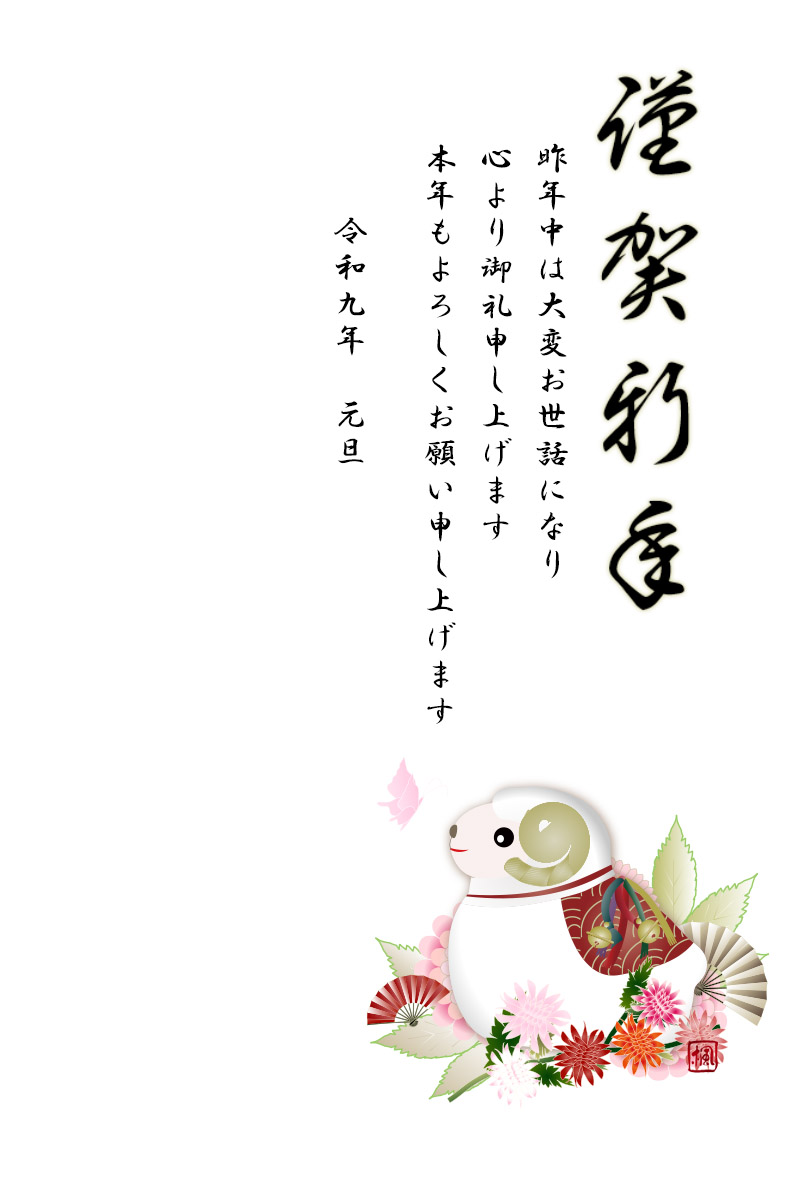 謹賀新年
昨年中は大変お世話になり
心より御礼申し上げます
本年もよろしくお願い申し上げます
令和九年　元旦
楓